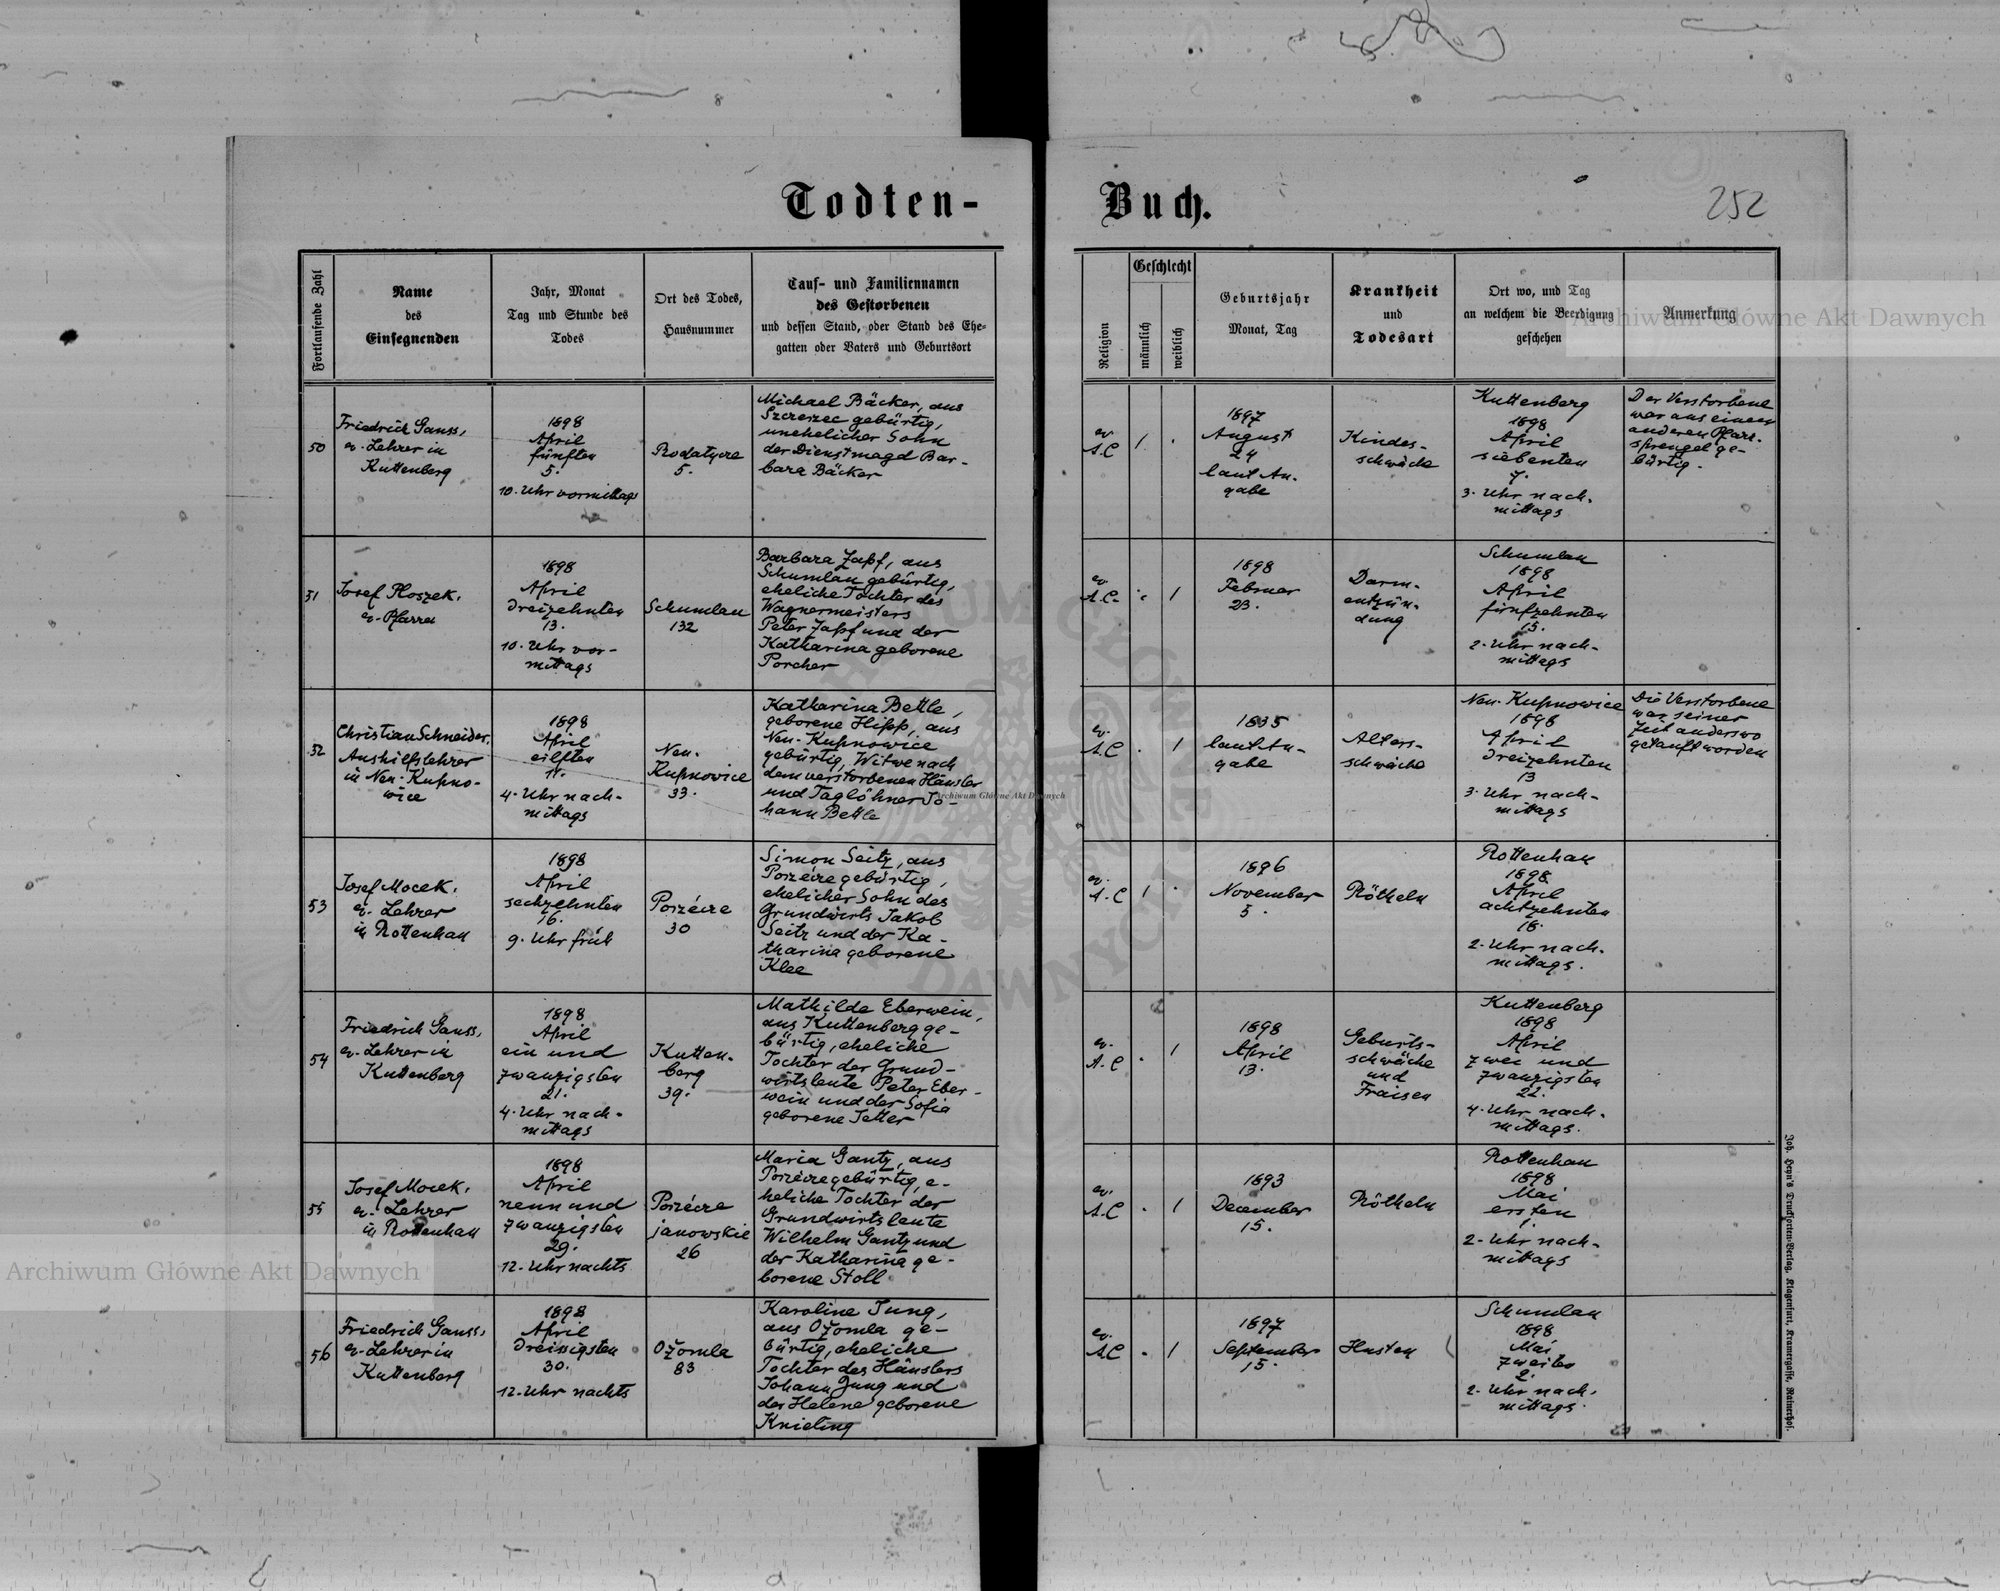 Todten-
Buch.
252
Fortlaufende Zahl
Name
des
Einsegnenden
Jahr, Monat
Tag und Stunde des
Todes
Ort des Todes,
Hausnummer
Tauf- und Familiennamen
des Gestorbenen
und dessen Stand, oder Stand des Ehe-
gatten oder Vaters und Geburtsort
Religion
Geschlecht
männlich
weiblich
Geburtsjahr
Monat, Tag
Krankheit
und
Todesart
Ort wo, und Tag
an welchem die Beerdigung
geschehen
Anmerkung
50
Friedrich Gauss,
ev. Lehrer in
Kuttenberg
1898
April
fünften
5.
10. Uhr vormittags
Rodatycze
5.
Michael Bäcker, aus
Szczerzec gebürtig,
unehelicher Sohn
der Dienstmagd Bar-
bara Bäcker
ev.
A.C
1
.
1897
August
24
laut An-
gabe
Kindes-
schwäche
Kuttenberg
1898
April
siebenten
7.
3. Uhr nach-
mittags
Der Verstorbene
war aus einem
anderen Pfarr-
sprengel ge-
bürtig.
51
Josef Ploszek,
ev. Pfarrer
1898
April
dreizehnten
13.
10. Uhr vor-
mittags
Schumlau
132
Barbara Zapf, aus
Schumlau gebürtig,
eheliche Tochter des
Wagnermeisters
Peter Zapf und der
Katharina geborene
Porcher
ev.
A.C.
.
1
1898
Februar
23.
Darm-
entzün-
dung
Schumlau
1898
April
fünfzehnten
15.
2. Uhr nach-
mittags
52
Christian Schneider,
Aushilfslehrer
in Neu-Kupno-
wice
1898
April
eilften
11.
4. Uhr nach-
mittags
Neu-
Kupnowice
33.
Katharina Bettle,
geborene Hipp, aus
Neu-Kupnowice
gebürtig, Witwe nach
dem verstorbenen Häusler
und Taglöhner Jo-
hann Bettle
ev.
A.C
.
1
1835
laut An-
gabe
Alters-
schwäche
Neu-Kupnowice
1898
April
dreizehnten
13
3. Uhr nach-
mittags
Die Verstorbene
war seiner
Zeit anderswo
getauft worden
53
Josef Mocek,
ev. Lehrer
in Rottenhan
1898
April
sechzehnten
16.
9. Uhr früh
Porzécze
30
Simon Seitz, aus
Porzécze gebürtig,
ehelicher Sohn des
Grundwirts Jakob
Seitz und der Ka-
tharina geborene
Klee
ev.
A.C
1
.
1896
November
5.
Rötheln
Rottenhan
1898
April
achtzehnten
18.
2. Uhr nach-
mittags.
54
Friedrich Gauss,
ev. Lehrer in
Kuttenberg
1898
April
ein und
zwanzigsten
21.
4. Uhr nach-
mittags
Kutten-
berg
39.
Mathilde Eberwein,
aus Kuttenberg ge-
bürtig, eheliche
Tochter der Grund-
wirtsleute Peter Eber-
wein und der Sofia
geborene Jetter
ev.
A.C
.
1
1898
April
13.
Geburts-
schwäche
und
Fraisen
Kuttenberg
1898
April
zwei und
zwanzigsten
22.
4. Uhr nach-
mittags.
55
Josef Mocek,
ev. Lehrer
in Rottenhan
1898
April
neun und
zwanzigsten
29.
12. Uhr nachts
Porzécze
janowskie
26
Maria Gantz, aus
Porzécze gebürtig, e-
heliche Tochter der
Grundwirtsleute
Wilhelm Gantz und
der Katharina ge-
borene Stoll
ev.
A.C
.
1
1893
December
15.
Rötheln
Rottenhan
1898
Mai
ersten
1.
2. Uhr nach-
mittags
56
Friedrich Gauss,
ev. Lehrer in
Kuttenberg
1898
April
dreissigsten
30.
12. Uhr nachts
Ożomla
83
Karoline Jung,
aus Ożomla ge-
bürtig, eheliche
Tochter des Häuslers
Johann Jung und
der Helene geborene
Knieling
ev.
A.C
.
1
1897
September
15.
Husten
Schumlau
1898
Mai
zweiten
2.
2. Uhr nach-
mittags.
Joh. Heyn's Drucksorten-Verlag, Klagenfurt, Kramergasse, Rainerhof.
Archiwum Główne Akt Dawnych
Archiwum Główne Akt Dawnych
Archiwum Główne Akt Dawnych